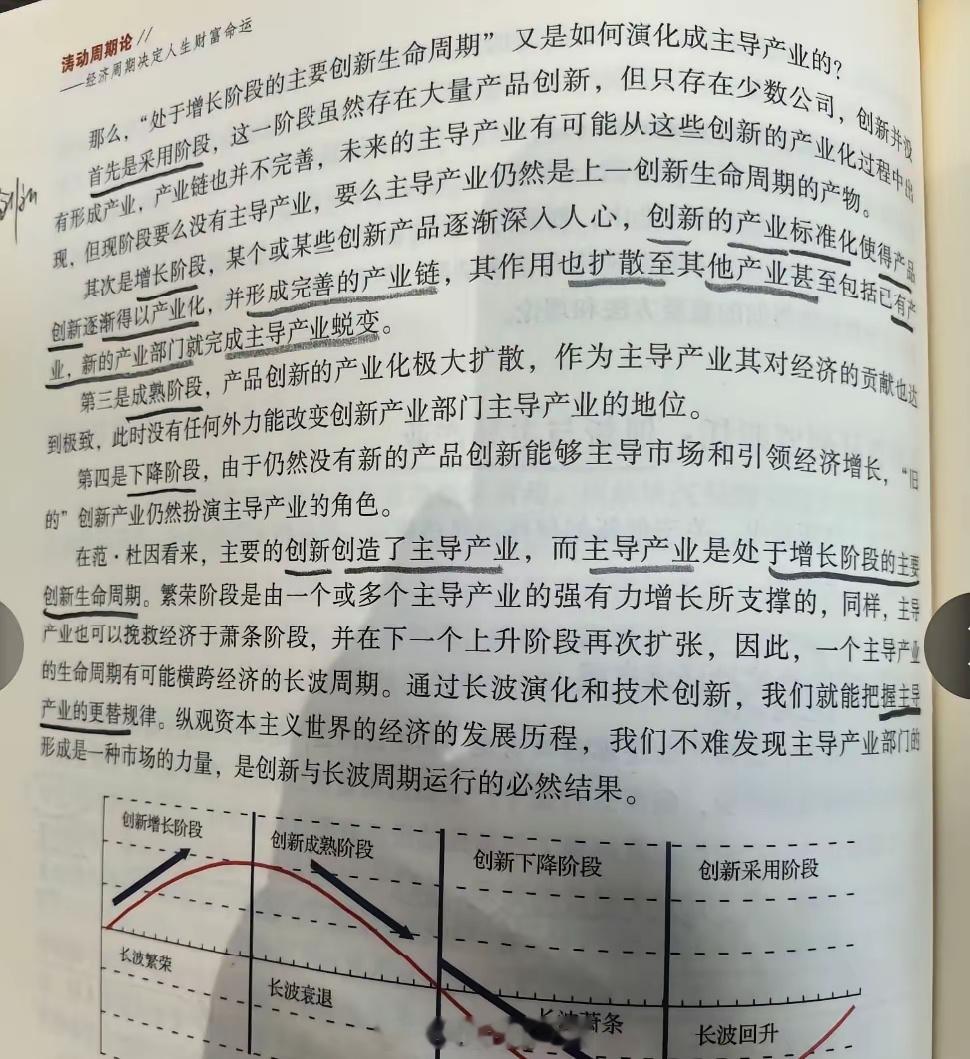 涛动周期论 //
——经济周期决定人生财富命运
那么，“处于增长阶段的主要创新生命周期”又是如何演化成主导产业的？
首先是采用阶段，这一阶段虽然存在大量产品创新，但只存在少数公司，创新并没
有形成产业，产业链也并不完善，未来的主导产业有可能从这些创新的产业化过程中出
现，但现阶段要么没有主导产业，要么主导产业仍然是上一创新生命周期的产物。
其次是增长阶段，某个或某些创新产品逐渐深入人心，创新的产业标准化使得产品
创新逐渐得以产业化，并形成完善的产业链，其作用也扩散至其他产业甚至包括已有产
业，新的产业部门就完成主导产业蜕变。
第三是成熟阶段，产品创新的产业化极大扩散，作为主导产业其对经济的贡献也达
到极致，此时没有任何外力能改变创新产业部门主导产业的地位。
第四是下降阶段，由于仍然没有新的产品创新能够主导市场和引领经济增长，“旧
的”创新产业仍然扮演主导产业的角色。
在范·杜因看来，主要的创新创造了主导产业，而主导产业是处于增长阶段的主要
创新生命周期。繁荣阶段是由一个或多个主导产业的强有力增长所支撑的，同样，主导
产业也可以挽救经济于萧条阶段，并在下一个上升阶段再次扩张，因此，一个主导产业
的生命周期有可能横跨经济的长波周期。通过长波演化和技术创新，我们就能把握主导
产业的更替规律。纵观资本主义世界的经济的发展历程，我们不难发现主导产业部门的
形成是一种市场的力量，是创新与长波周期运行的必然结果。
创新增长阶段
创新成熟阶段
创新下降阶段
创新采用阶段
长波繁荣
长波衰退
长波萧条
长波回升